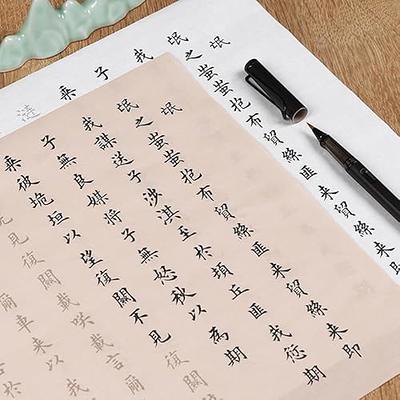 氓之蚩蚩抱布貿絲匪来貿絲来即
我
子
乘
漣
氓之蚩蚩抱布貿絲匪来貿絲来即
我謀送子涉淇至於頓丘匪我愆期
子無良媒將子無怒秋以為期
乘彼垝垣以望復關不見復關
見復關載咲載言爾
爾車来以我
於